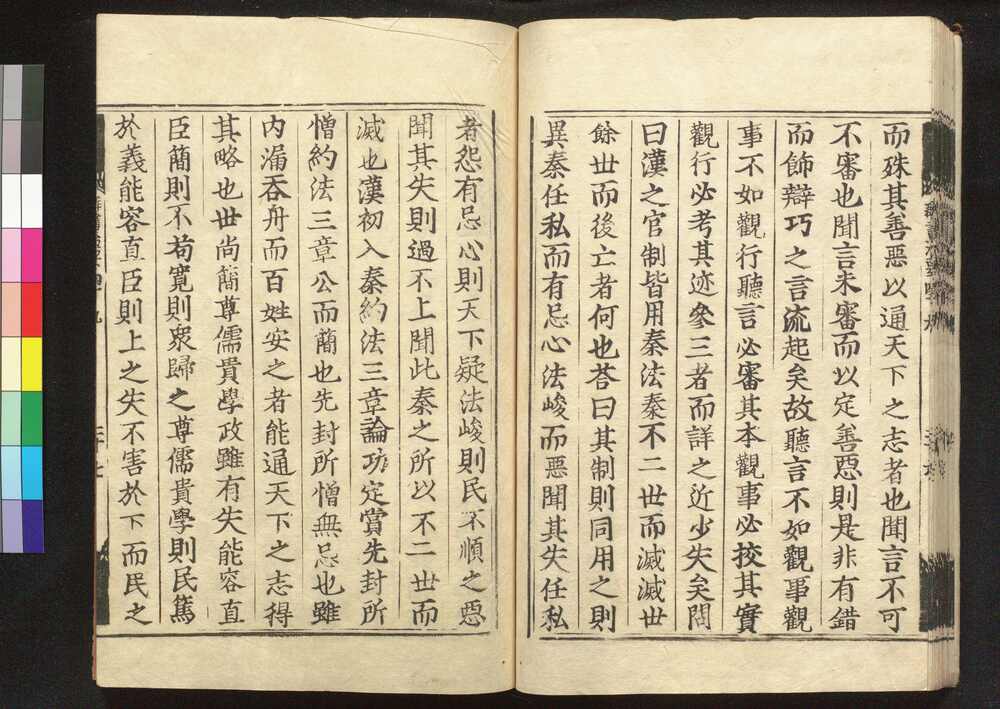 而殊其善惡以通天下之志者也聞言不可
不審也聞言未審而以定善惡則是非有錯
而飾辯巧之言流起矣故聽言不如觀事觀
事不如觀行聽言必審其本觀事必挍其實
觀行必考其迹參三者而詳之近少失矣問
曰漢之官制皆用秦法秦不二世而滅滅世
餘世而後亡者何也荅曰其制則同用之則
異秦任私而有忌心法峻而惡聞其失任私
者怨有忌心則天下疑法峻則民不順之惡
聞其失則過不上聞此秦之所以不二世而
滅也漢初入秦約法三章論功定賞先封所
憎約法三章公而簡也先封所憎無忌也雖
内漏吞舟而百姓安之者能通天下之志得
其略也世尚簡尊儒貴學政雖有失能容直
臣簡則不苟寬則衆歸之尊儒貴學則民篤
於義能容直臣則上之失不害於下而民之